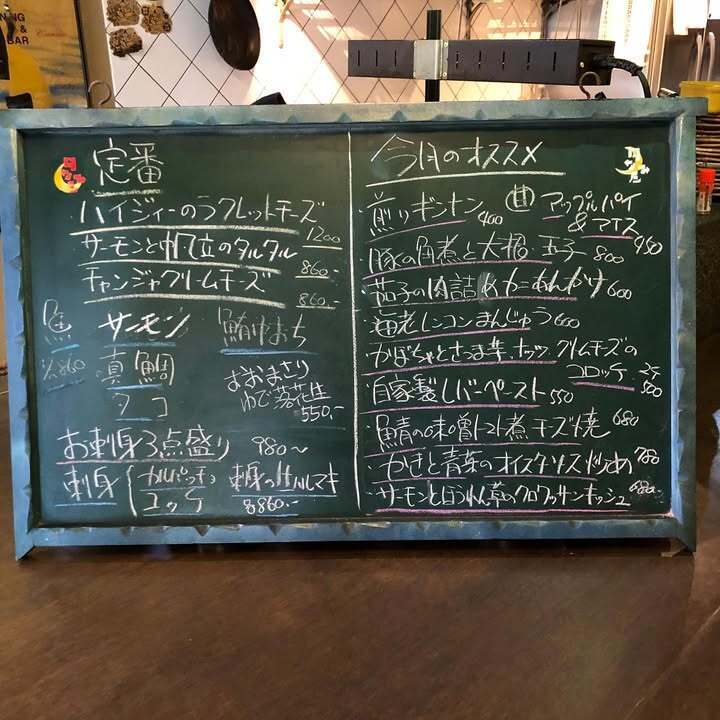 NING
&
BAR
定番
ハイジィーのラクレットチーズ
1200
サーモンと帆立のタルタル
860.-
チャンジャクリームチーズ
860.-
魚 サーモン 鮪中おち
真鯛
タコ
おおまさり
ゆで落花生
550.-
お刺身3点盛り 980〜
刺身 カルパッチョ
ユッケ
860.-
今月のオススメ
煎りギンナン 400
甘 アップルパイ
& アイス 450
豚の角煮と大根・玉子 800
茄子の肉詰め かにあんかけ 600
海老レンコンまんじゅう 600
かぼちゃとさつま芋、ナッツ クリームチーズの
コロッケ 2ケ
500
自家製レバーペースト 550
鯖の味噌トマト煮チーズ焼 680
かきと青菜のオイスターソース炒め 780
サーモンとほうれん草のクロワッサンキッシュ